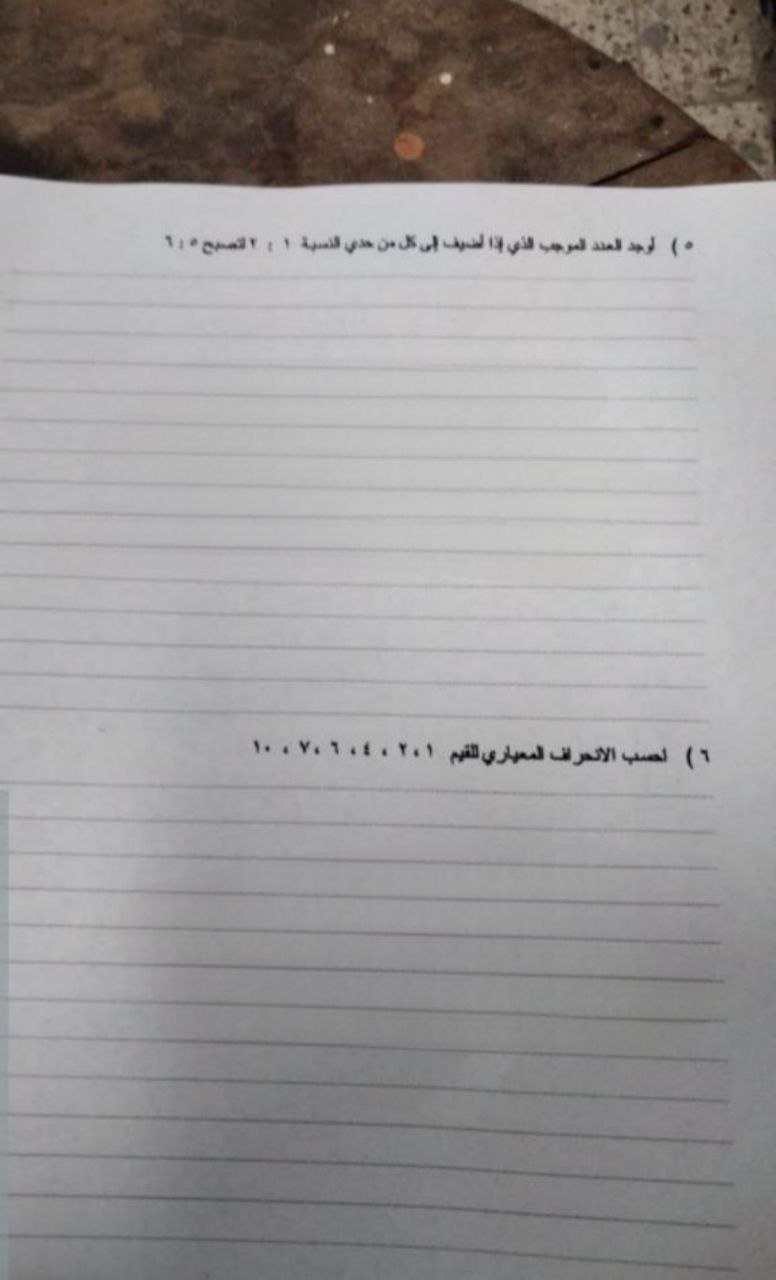 ٥ ) أوجد العدد الموجب الذي إذا أضيف إلى كل من حدي النسبة ١ : ٢ لتصبح ٥ : ٦
٦ ) احسب الانحراف المعياري للقيم ١ ، ٢ ، ٤ ، ٦ ، ٧ ، ١٠